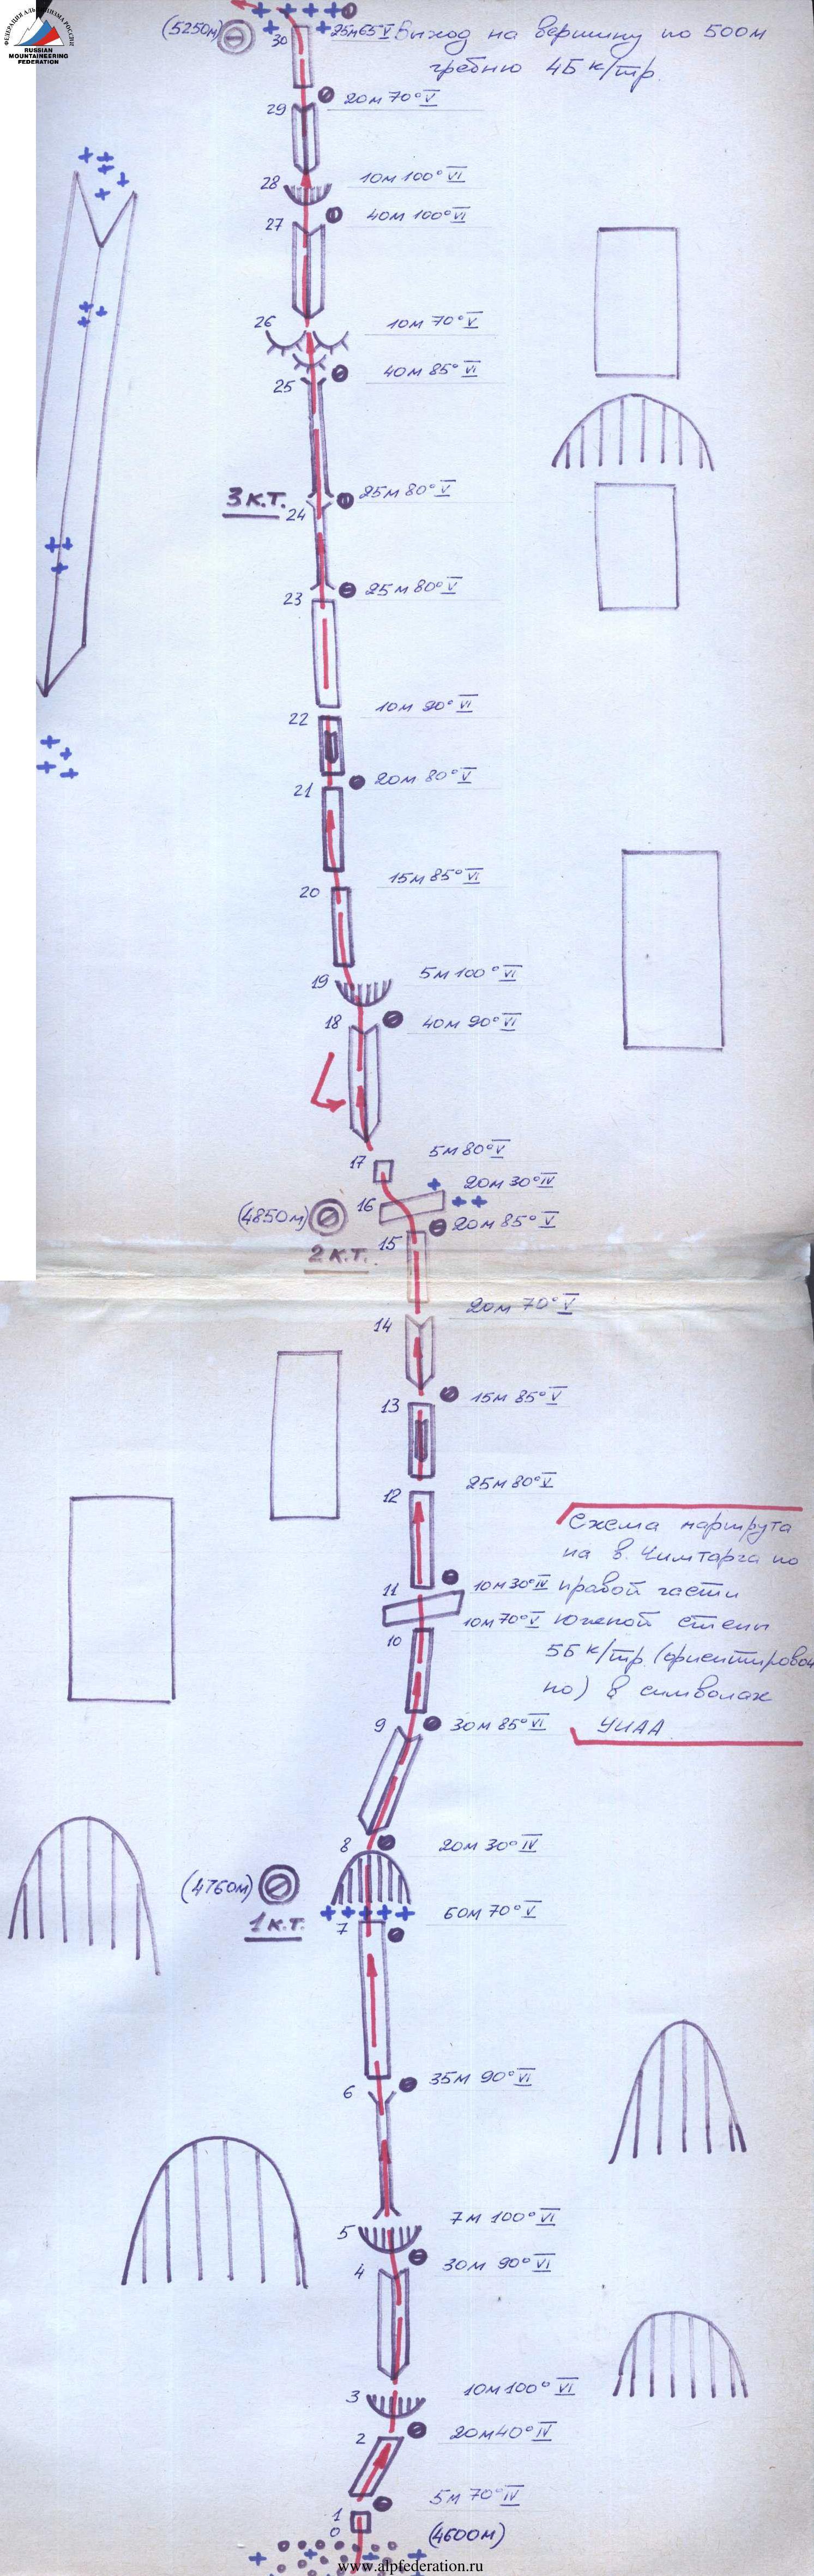 ФЕДЕРАЦИЯ АЛЬПИНИЗМА РОССИИ
RUSSIAN
MOUNTAINEERING
FEDERATION
(5250м)
30
25м65 V Выход на вершину по 500м
гребню 4Б к/тр.
29
20м 70° V
28
10м 100° VI
27
40м 100° VI
26
10м 70° V
25
40м 85° VI
3 к.т.
24
25м 80° V
23
25м 80° V
22
10м 90° VI
21
20м 80° V
20
15м 85° VI
19
5м 100° VI
18
40м 90° VI
17
5м 80° V
16
20м 30° IV
(4850м)
2 к.т.
15
20м 85° V
14
20м 70° V
13
15м 85° V
12
25м 80° V
11
10м 30° IV
10
10м 70° V
Схема маршрута
на в. Чимтарга по
правой части
Южной стены
5Б к/тр. (ориентировоч
но) в символах
УИАА
9
30м 85° VI
8
20м 30° IV
(4760м)
1 к.т.
7
60м 70° V
6
35м 90° VI
5
7м 100° VI
4
30м 90° VI
3
10м 100° VI
2
20м 40° IV
1
5м 70° IV
0
(4600м)
www.alpfederation.ru